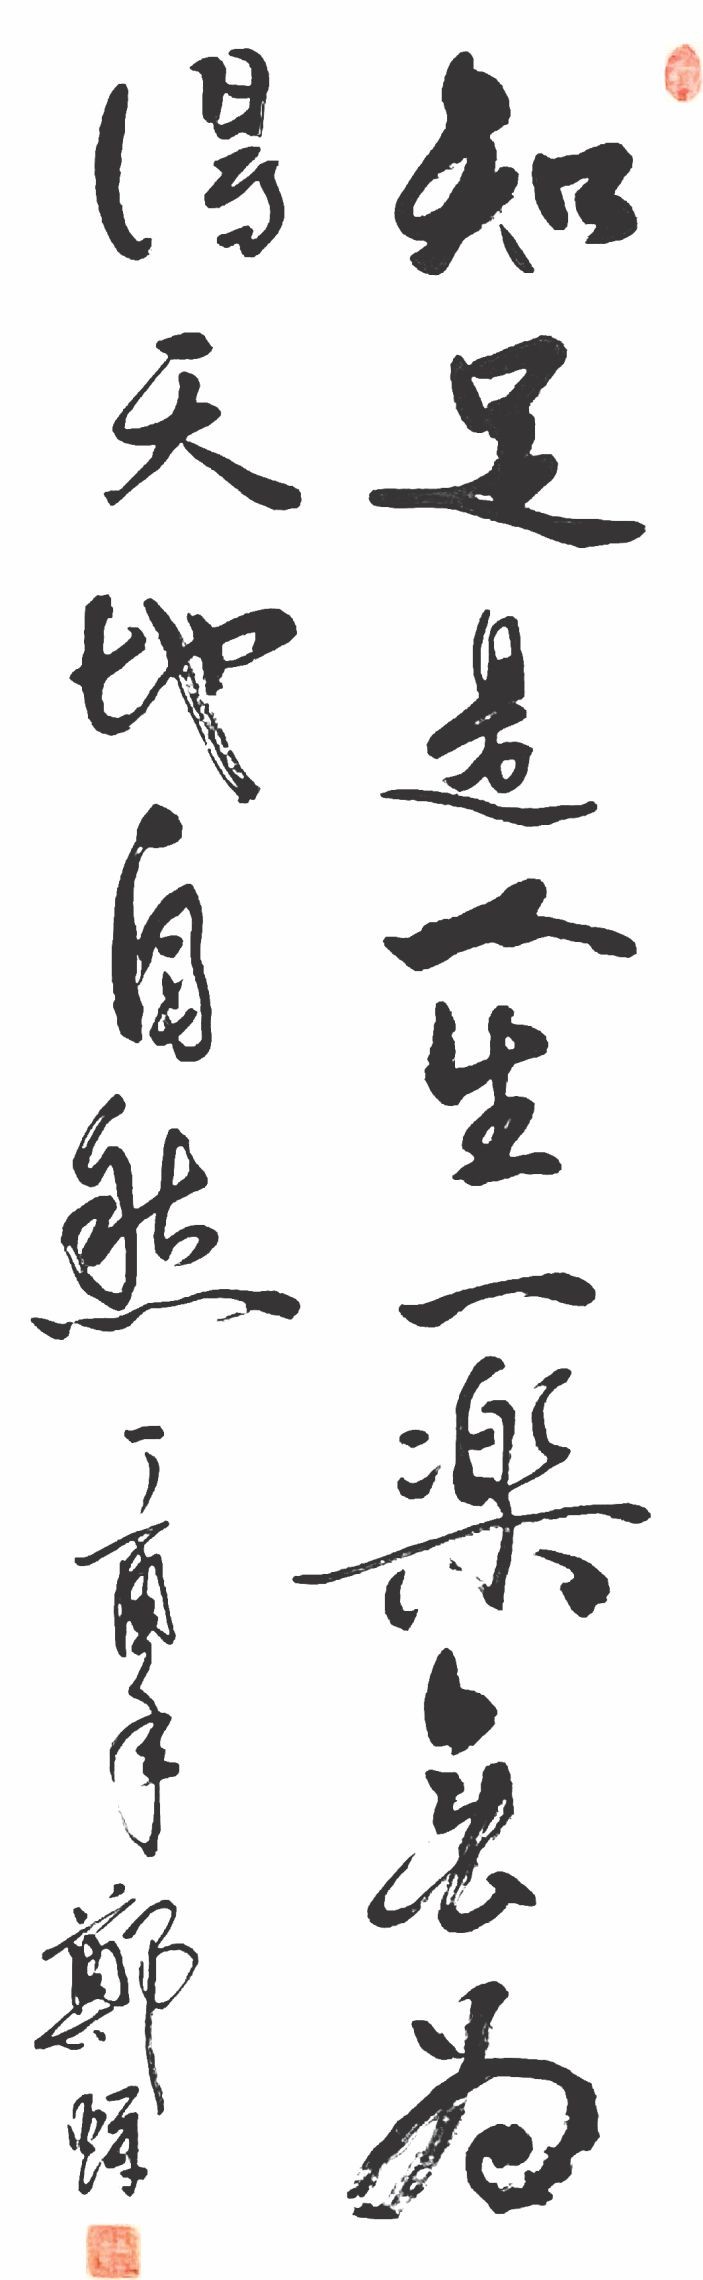 知足是人生一樂無為
得天地自然 丁酉年 鄭